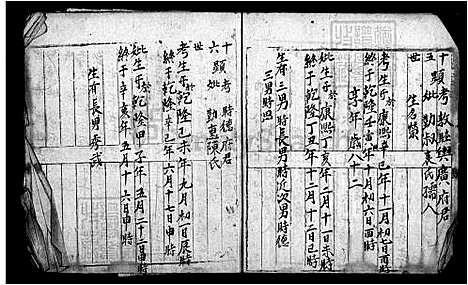 十五世 顯考妣 敦旺興牆府君 勤叔袁氏孺人
生名榮
考生於康熙辛巳年十一月初七日酉時
終於乾隆壬寅年十月初六日酉時
享年八十二
妣生於康熙丁亥年二月十一日未時
終於乾隆丁丑年十二月十二日巳時
生有三男 長男時近 次男時德
三男時照
十六世 顯考妣 時德府君 勤惠張氏
考生於乾隆己未年九月初一日辰時
終於乾隆辛巳年六月十七日申時
妣生于乾隆甲子年五月十二日申時
終于辛亥年五月十六日申時
生有長男秀武